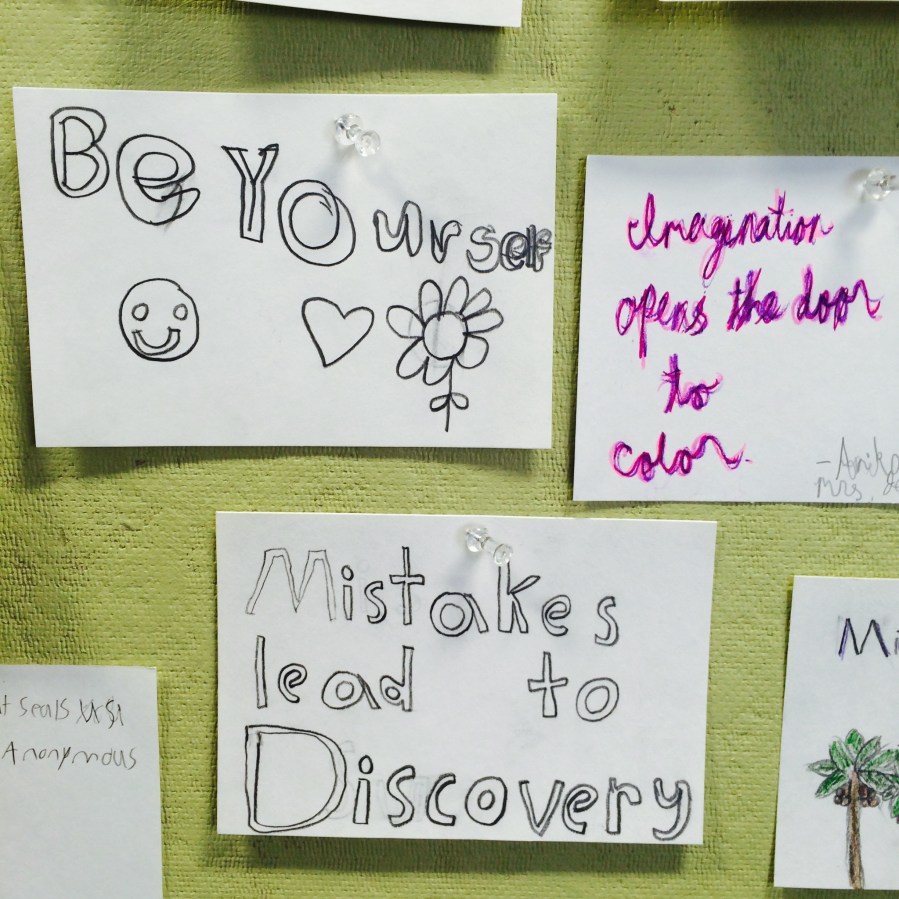 Be Yourself
Imagination
opens the door
to
color.
Mistakes
lead to
Discovery
Seals
Anonymous
Mi
Mrs.